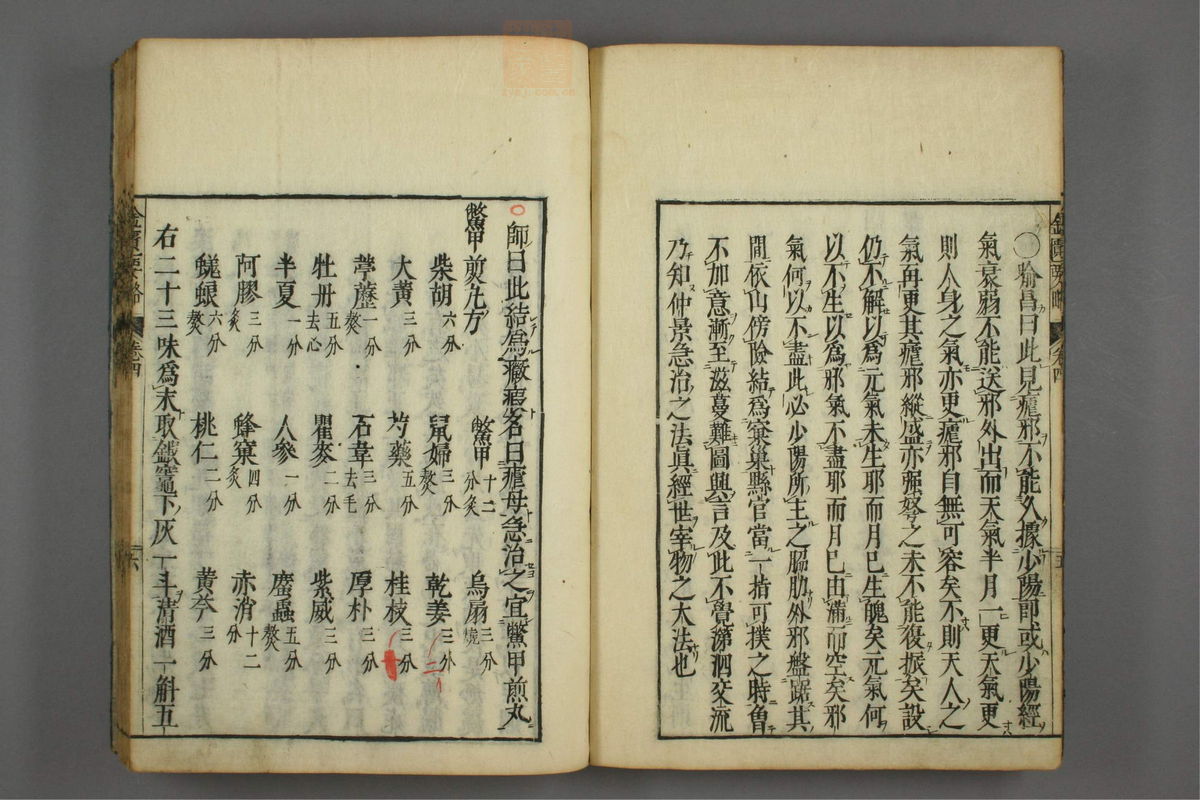 〇喻昌曰此見瘧邪不能久據少陽即或少陽經
氣衰弱不能送邪外出而天氣半月一更天氣更
則人身之氣亦更瘧邪自無可容矣不則天人之
氣再更其瘧邪縱盛亦强弩之末不能復振矣設
仍不解以爲元氣未生耶而月巳生魄矣元氣何
以不生以爲邪氣不盡耶而月巳由滿而空矣邪
氣何以不盡此必少陽所主之脇肋外邪盤踞其
間依山傍險結爲窠巢縣官當一指可撲之時曾
不加意漸至滋蔓難圖興言及此不覺涕泗交流
乃知仲景急治之法眞經世宰物之大法也
〇師曰此結爲癥瘕名曰瘧母急治之宜鱉甲煎丸
鱉甲煎丸方 鱉甲十二分炙 烏扇三分燒
柴胡六分 鼠婦三分熬 乾姜三分
大黃三分 芍藥五分 桂枝三分
葶藶一分熬 石韋三分去毛 厚朴三分
牡丹五分去心 瞿麥二分 紫威三分
半夏一分 人參一分 䗪蟲五分熬
阿膠三分炙 蜂窠四分炙 赤消十二分
蜣蜋六分熬 桃仁二分 黃芩三分
右二十三味爲末取鍛竈下灰一斗清酒一斛五
金匱要略 卷四 六